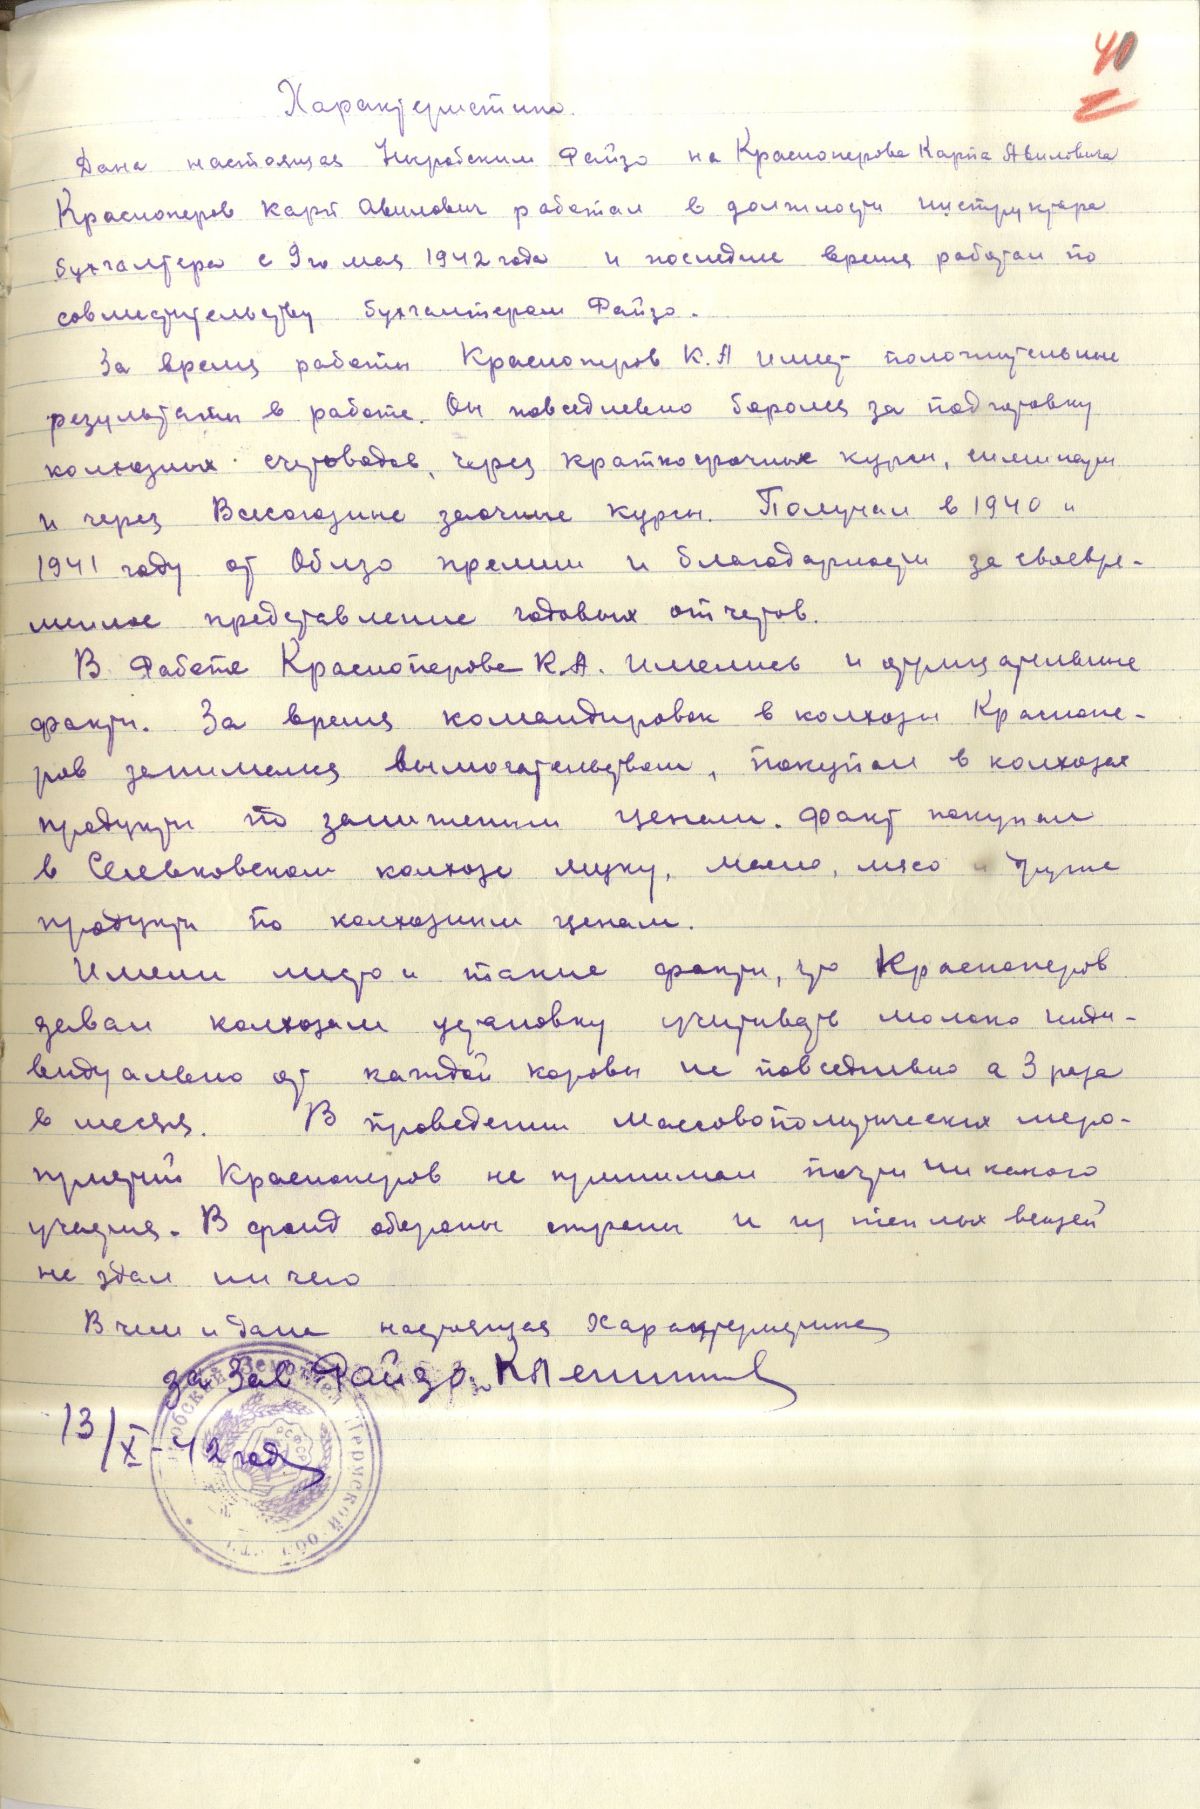 40
Характеристика.
Дана настоящая Ныробским Райзо на Красноперова Карпа Авиловича
Красноперов Карп Авилович работал в должности инструктора
бухгалтера с 9го мая 1942 года и последнее время работал по
совместительству бухгалтером Райзо.
За время работы Красноперов К.А имет положительные
результаты в работе. Он повседневно боролся за подготовку
колхозных счетоводов, через краткосрочные курсы, семинары
и через Всесоюзные заочные курсы. Получал в 1940 и
1941 году от Облзо премии и благодарности за своевре-
менное представление годовых отчетов.
В Работе Красноперова К.А. имелись и отрицательные
факты. За время командировок в колхозы Краснопе-
ров занимался вымогательством, покупал в колхозах
продукты по заниженым ценам. Факт покупал
в колхозе муку, масло, мясо и другие
продукты по колхозным ценам.
Имели место и такие факты, что Красноперов
давал колхозам установку учитывать молоко инди-
видуально от каждой коровы не повседневно а 3 раза
в месяц. В проведении массовополитических меро-
приятий Красноперов не принимал почти никакого
участия. В фонд обороны страны и из теплых вещей
не здал ни чего
В чем и дана настоящая характеристика
за Зав Райзо
13/X-42 года
Пермской обл
РСФСР